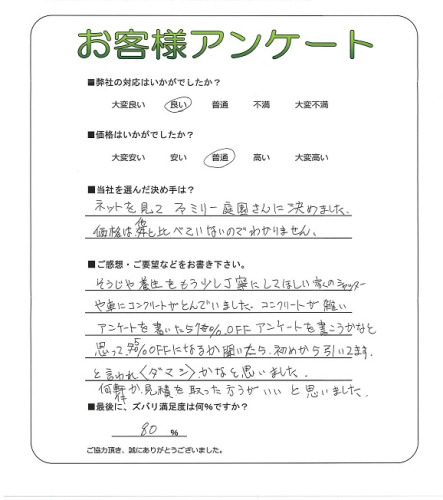 お客様アンケート
■弊社の対応はいかがでしたか？
大変良い 良い 普通 不満 大変不満
■価格はいかがでしたか？
大変安い 安い 普通 高い 大変高い
■当社を選んだ決め手は？
ネットを見て ファミリー庭園さんに決めました。
価格は他と比べていないのでわかりません。
■ご感想・ご要望などをお書き下さい。
そうじや養生をもう少し丁寧にしてほしい 家のシャッター
や車にコンクリートがとんでいました。コンクリートが雑い
アンケートを書いたら %OFF アンケートを書こうかなと
思って、5%OFFになるか聞いたら、初めから引いてます。
と言われ〈ダマシ〉かなと思いました。
何軒か見積を取った方がいいと思いました。
■最後に、ズバリ満足度は何%ですか？
80 %
ご協力頂き、誠にありがとうございました。